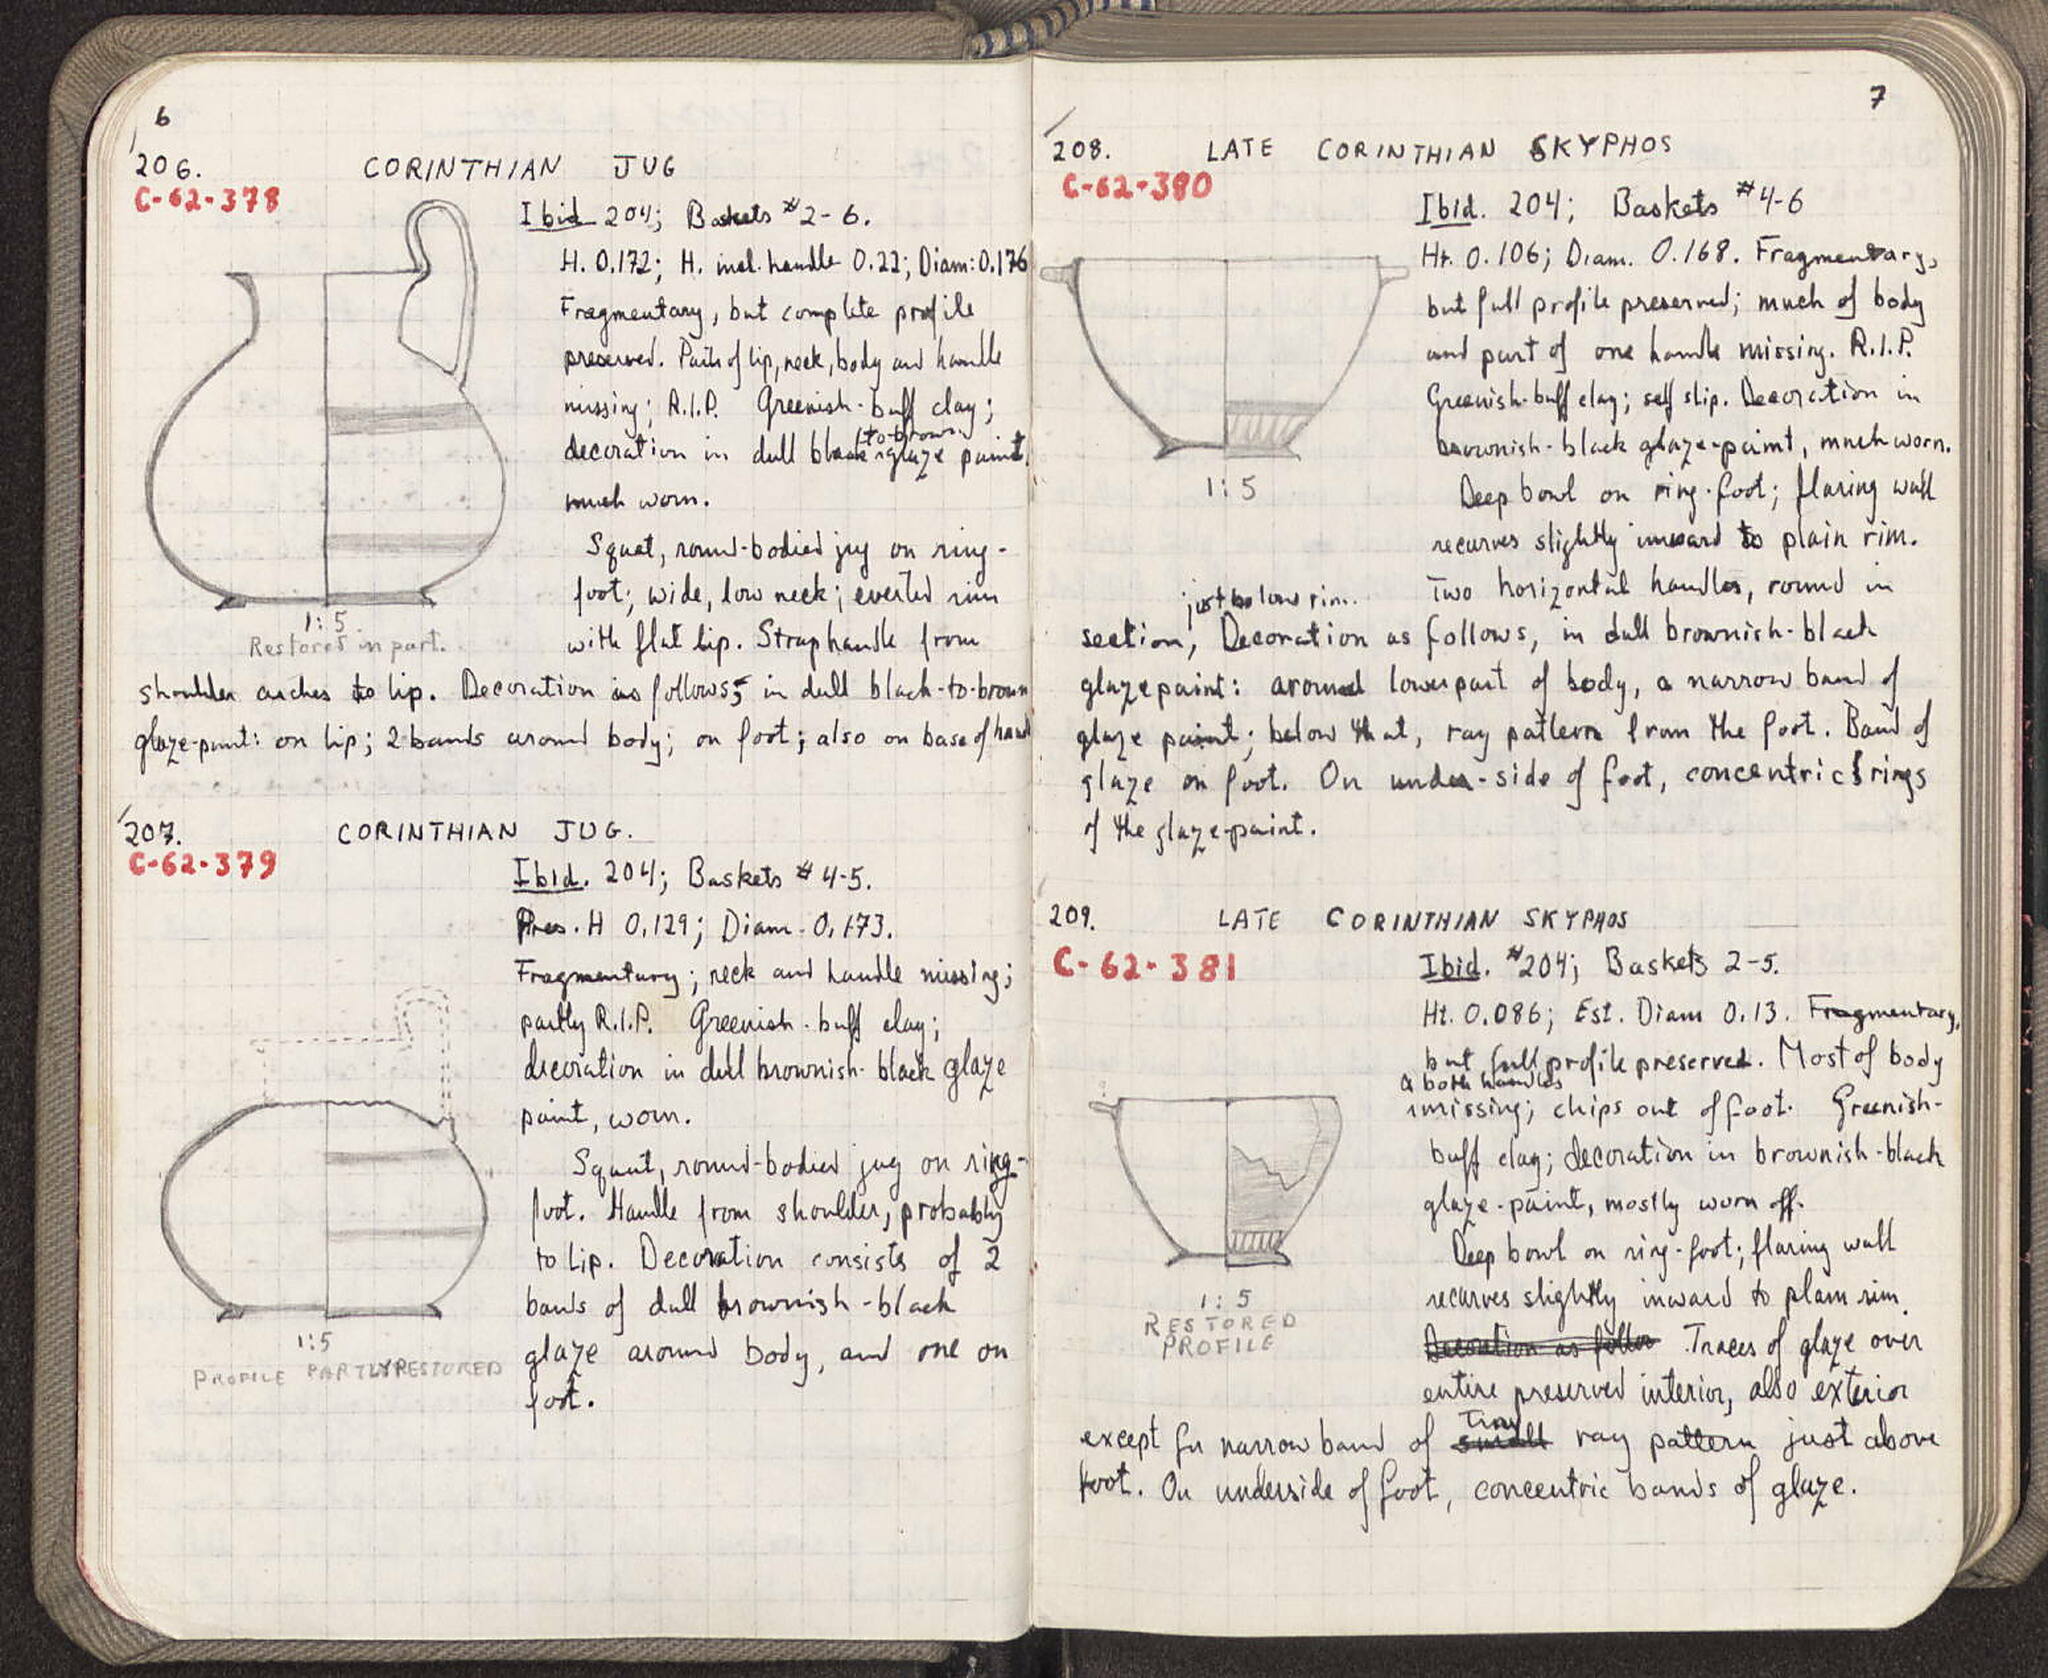 6
206. CORINTHIAN JUG
C-62-378
Ibid 204; Baskets #2-6.
H. 0.172; H. incl. handle 0.22; Diam: 0.176
Fragmentary, but complete profile
preserved. Parts of lip, neck, body and handle
missing; R.I.P. Greenish-buff clay;
to-brown
decoration in dull black glaze paint,
much worn.
Squat, round-bodied jug on ring-
foot; wide, low neck; everted rim
with flat lip. Strap handle from
1:5
Restored in part.
shoulder arches to lip. Decoration as follows, in dull black-to-brown
glaze-paint: on lip; 2 bands around body; on foot; also on base of hand
207. CORINTHIAN JUG.
C-62-379
Ibid. 204; Baskets #4-5.
Pres. H 0.129; Diam. 0.173.
Fragmentary; neck and handle missing;
partly R.I.P. Greenish-buff clay;
decoration in dull brownish-black glaze
paint, worn.
Squat, round-bodied jug on ring-
foot. Handle from shoulder, probably
to lip. Decoration consists of 2
bands of dull brownish-black
glaze around body, and one on
foot.
1:5
PROFILE PARTLY RESTORED
7
208. LATE CORINTHIAN SKYPHOS
C-62-380
Ibid. 204; Baskets #4-6
Ht. 0.106; Diam. 0.168. Fragmentary,
but full profile preserved; much of body
and part of one handle missing. R.I.P.
Greenish-buff clay; self slip. Decoration in
brownish-black glaze-paint, much worn.
1:5
Deep bowl on ring-foot; flaring wall
recurves slightly inward to plain rim.
Two horizontal handles, round in
just below rim.
section, Decoration as follows, in dull brownish-black
glaze paint: around lower part of body, a narrow band of
glaze paint; below that, ray pattern from the foot. Band of
glaze on foot. On under-side of foot, concentric rings
of the glaze-paint.
209. LATE CORINTHIAN SKYPHOS
C-62-381
Ibid. #204; Baskets 2-5.
Ht. 0.086; Est. Diam 0.13. Fragmentary,
but full profile preserved. Most of body
& both handles
missing; chips out of foot. Greenish-
buff clay; decoration in brownish-black
glaze-paint, mostly worn off.
Deep bowl on ring-foot; flaring wall
recurves slightly inward to plain rim.
1:5
RESTORED
PROFILE
Decoration as follow Traces of glaze over
entire preserved interior, also exterior
Tiny
except for narrow band of small ray pattern just above
foot. On underside of foot, concentric bands of glaze.